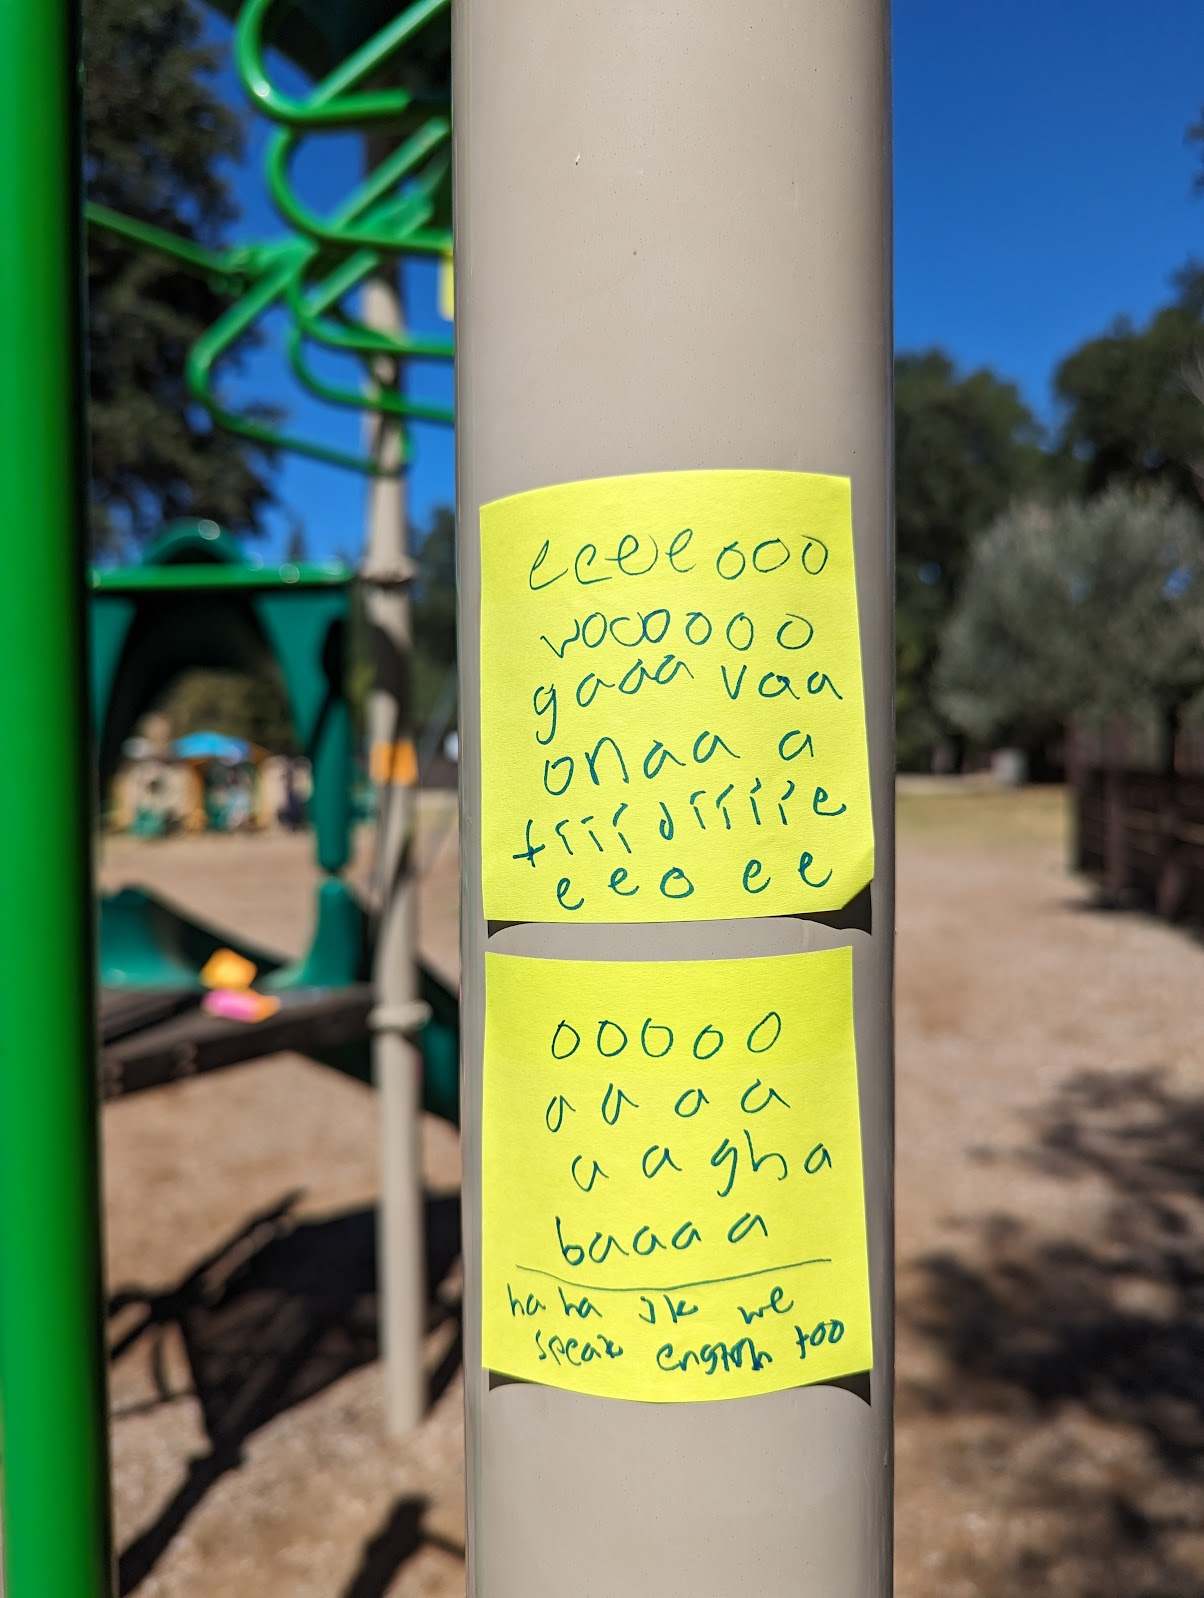 eeeeeooo
woooooo
gaaa vaa
onaa a
tííí díííííe
eeo ee
ooooo
a a a a
a a gha
baaa a
ha ha jk we
speak english too